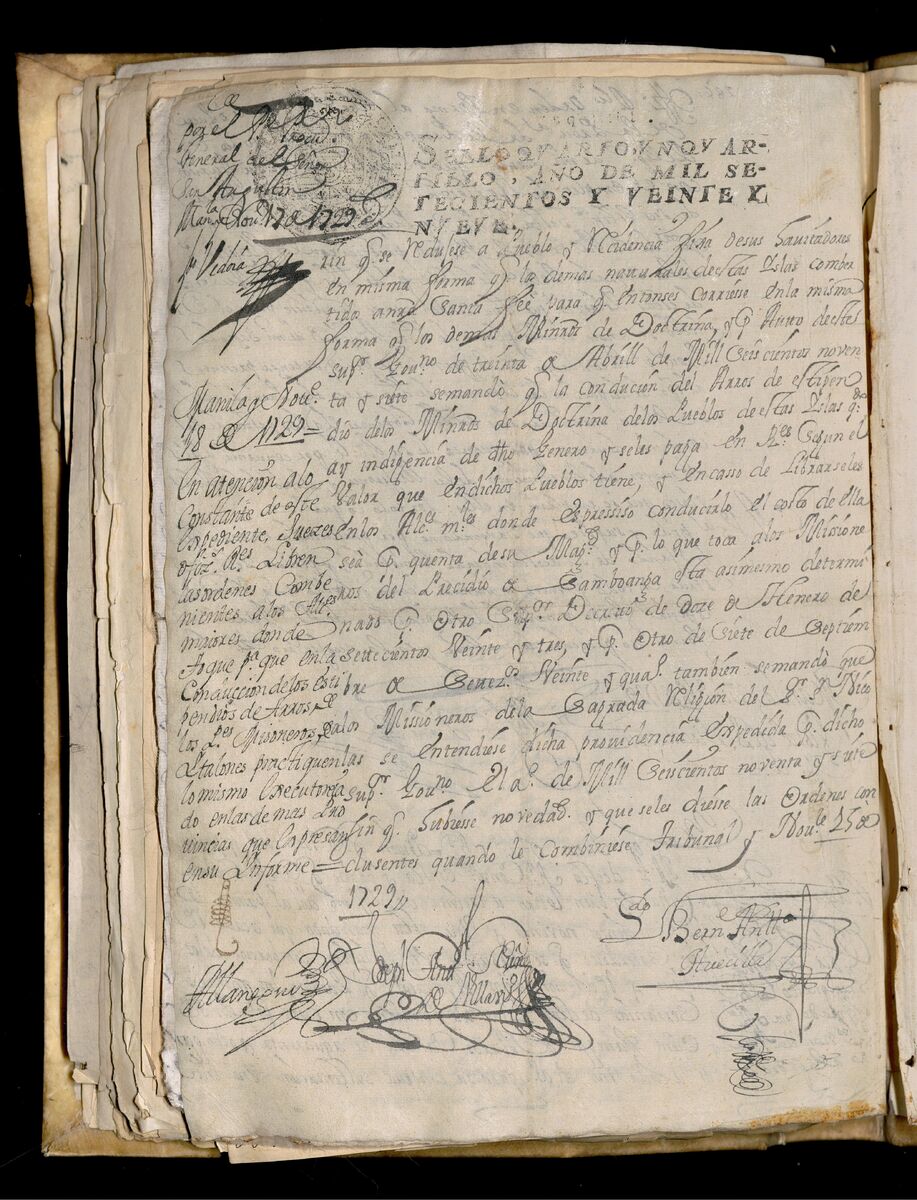 SELLO QVARTO VN QVAR-
TILLO, AÑO DE MIL SE-
TECIENTOS Y VEINTE Y
NVEVE.
por el
General del Señor
San Agustin
Man.la Nov.e 17 de 1729
rin q.e se Redusese a Pueblo y Recidencia fixa desus havitadores
en misma forma q.e los demas naturales destas Yslas comber
tidos anrã Santa feé para q.e entonses corriesse enla misma
forma q.e los demas Minros de Doctrina, y p.r Auto deeste
sup.or Gov.no de treinta de Abrill de Mill Seiscientos noven
ta y siete semandó q.e la condución del Arros de estipen
dio delos Minros de Doctrina delos Pueblos deestas Yslas q.do
ay indigencia de dho Genero y seles paga en R.es Segun el
Valor que endichos Pueblos tiene, y encasso de Librarseles
enlos Alc.es m.res donde es expressiso conducirlo el costo de ella
seà p.r quenta desu Mag.d y p.r lo que toca alos Missione
ros del Precidio de Samboanga esta asimesmo determi
nado p.r Otro Sup.or Decreto de doze de Henero de
settecientos Veinte y tres, y p.r Otro de Siete de Septiem
bre de Sete z.os Veinte y qua.o también semandò que
alos Missioneros dela Sagrada Religión del S.r S.n Nico
las se entendiese dicha providencia Expedida p.r dicho
sup.or Gov.no el a.o de Mill Seiscientos noventa y siete
sin q.e hubiesse novedad. y que seles diesse las Ordenes con
clusentes quando le Combiniese Tribunal y Nov.e 25 de
1729
Manila y Nov.e
18 de 1729 =
En atención alo
Constante de este
Expediente, Juezes
ofiz. R.es Libren
las ordenes Combe
nientes a los Alc.es
maiores donde
p.a que en la
Conducción delos esti
pendios de Arros, de
los P.es Misioneros
practiquen
lo mismo Executan
do enlas demas Pro
vincias que Expresan
ensu Ynforme =